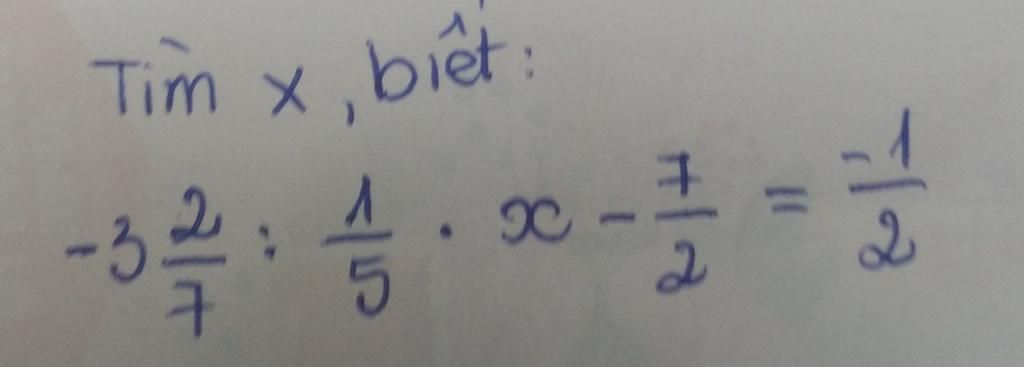 Tìm x, biết:
-3 2/7 : 1/5 . x - 7/2 = -1/2